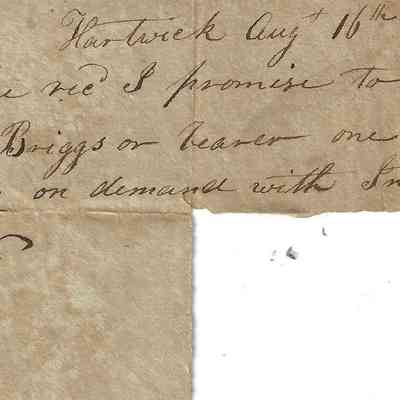 Hartwick Augt 16th
e recd I promise to
Briggs or bearer one
on demand with In